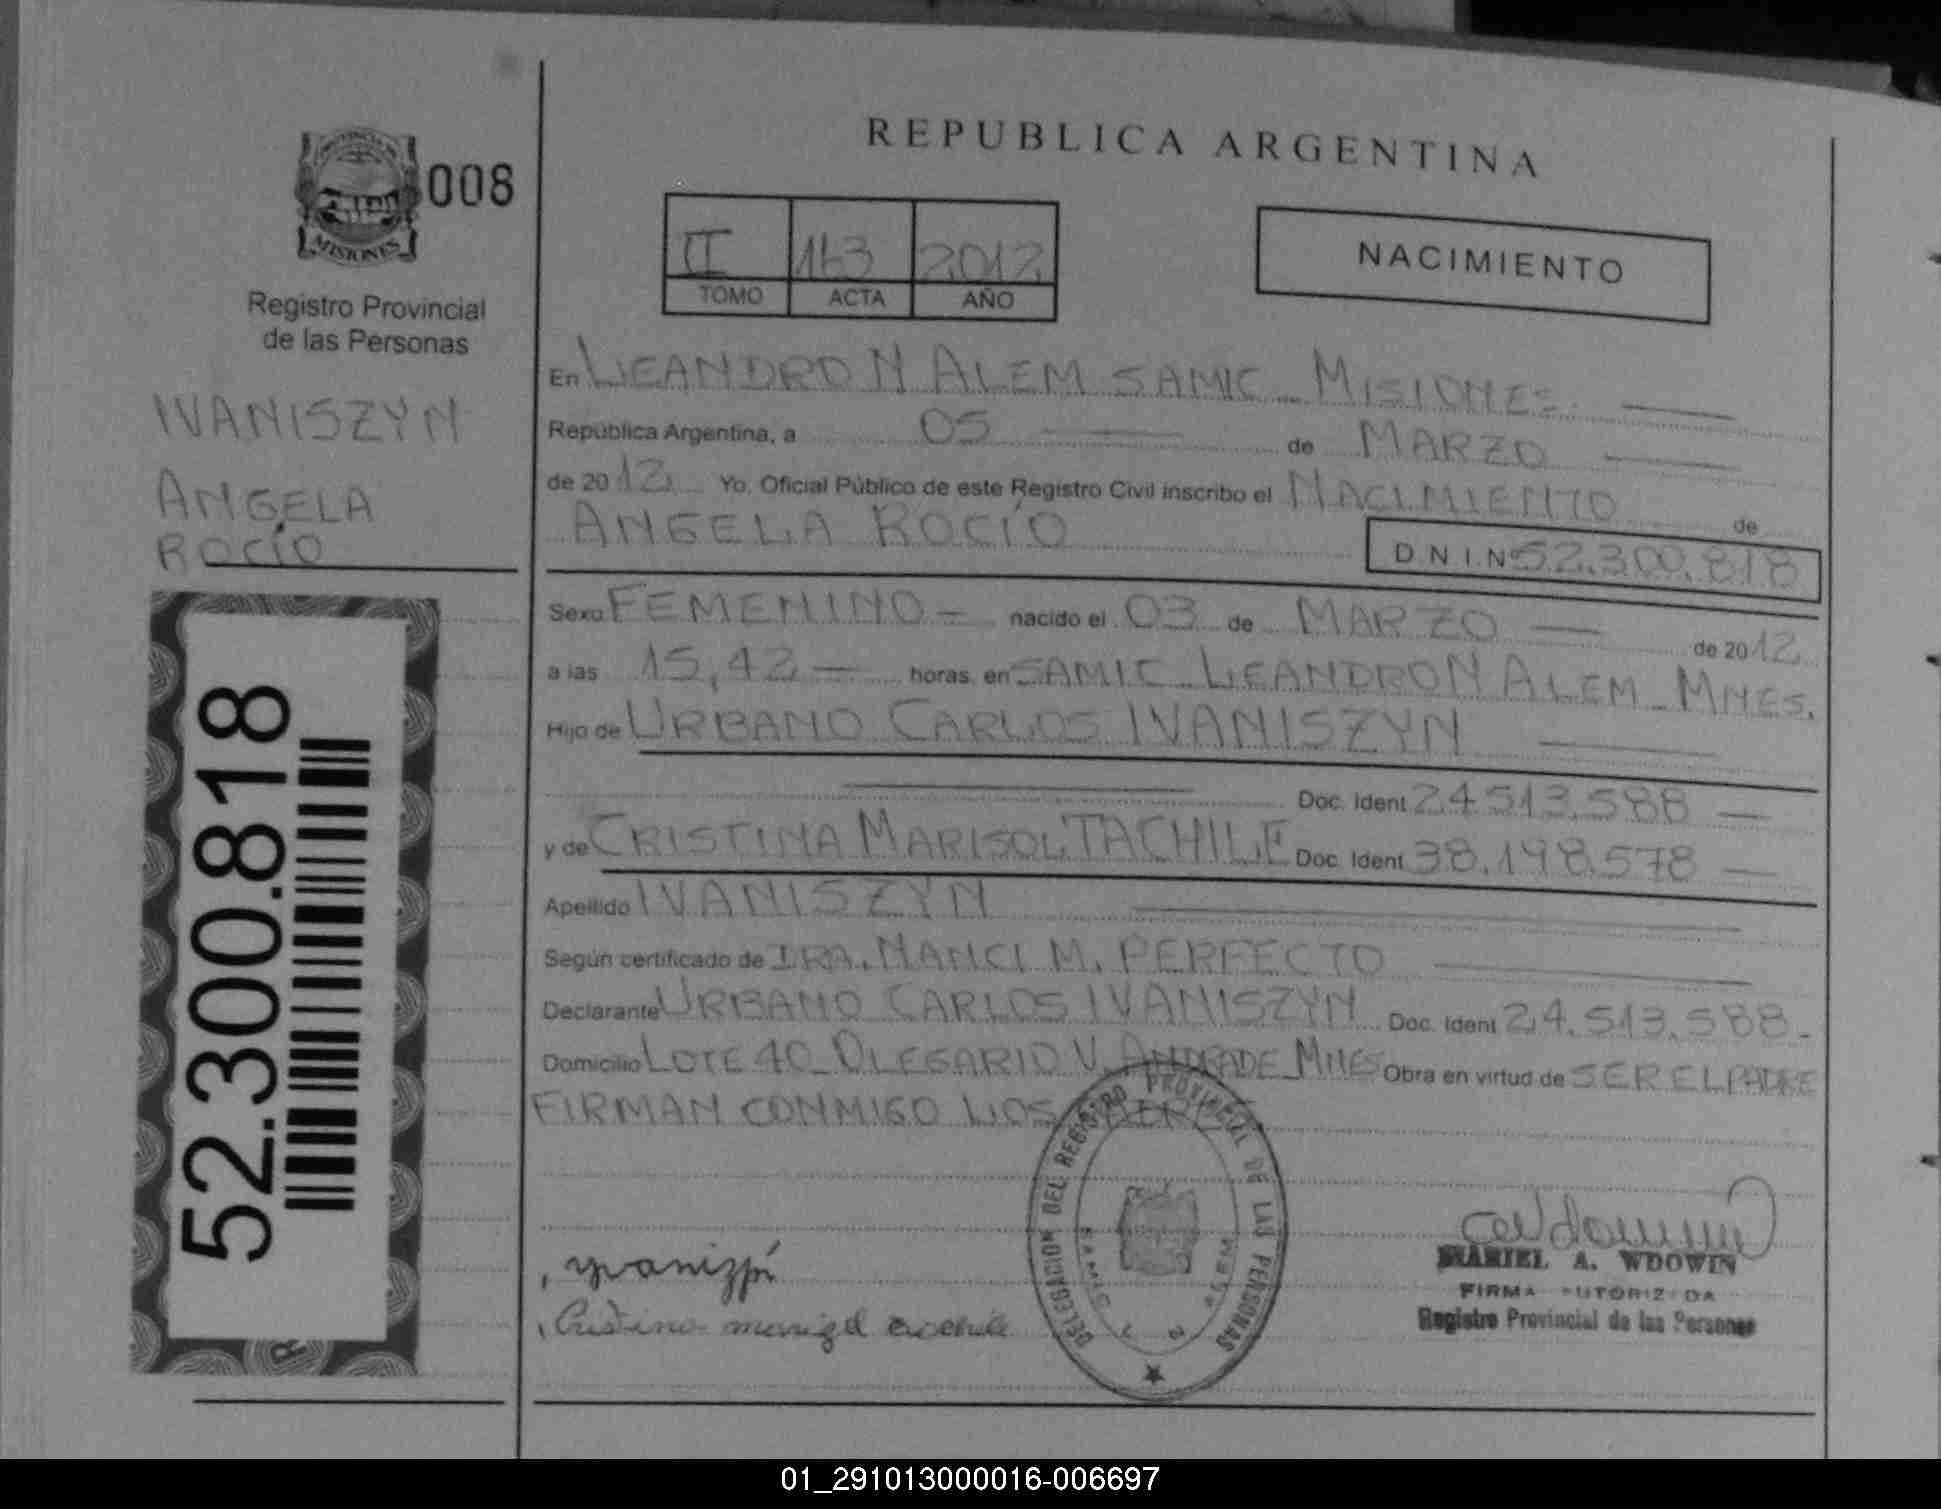 MISIONES
008
Registro Provincial
de las Personas
IVANISZYN
ANGELA
ROCÍO
52.300.818
REPUBLICA ARGENTINA
II 163 2012
TOMO ACTA AÑO
NACIMIENTO
En LEANDRO N ALEM SAMIC - MISIONES.
República Argentina, a 05 de MARZO
de 2012 Yo, Oficial Público de este Registro Civil inscribo el NACIMIENTO de
ANGELA ROCÍO
D.N.I.Nº 52.300.818
Sexo FEMENINO - nacido el 03 de MARZO de 2012
a las 15,42 - horas, en SAMIC LEANDRO N ALEM - MNES.
Hijo de URBANO CARLOS IVANISZYN
Doc. Ident 24.513.588
y de CRISTINA MARISOL TACHILE Doc. Ident 38.198.578
Apellido IVANISZYN
Según certificado de DRA. NANCI M. PERFECTO
Declarante URBANO CARLOS IVANISZYN Doc. Ident 24.513.588.
Domicilio LOTE 40 - OLEGARIO V. ANDRADE - MNES Obra en virtud de SER EL PADRE
FIRMAN CONMIGO LOS
DELEGACION DEL REGISTRO PROVINCIAL DE LAS PERSONAS
SAMIC L N ALEM
MARIEL A. WDOWIN
FIRMA AUTORIZADA
Registro Provincial de las Personas
01_291013000016-006697